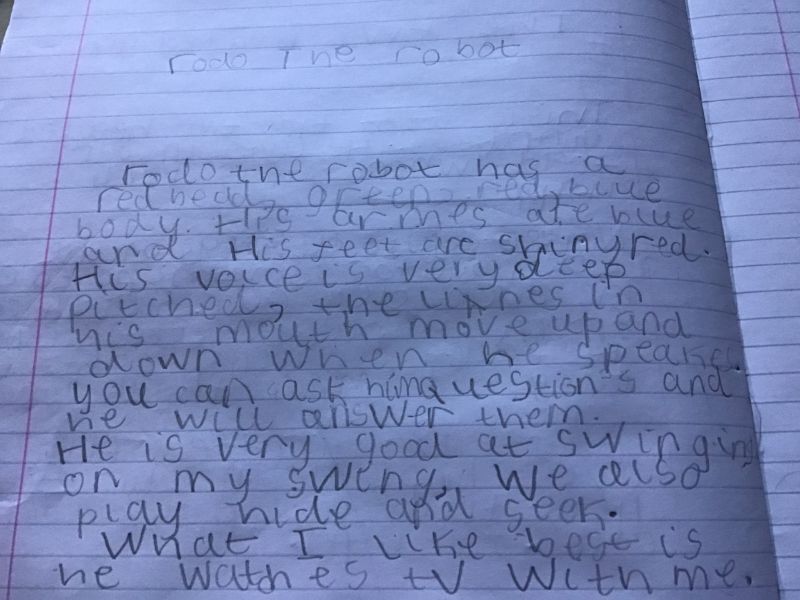 rodo The robot
rodo the robot has a
red hedd, green, red, blue
body. His armes are blue
and His feet are shiny red.
His voice is very deep
pitched, the linnes in
his mouth move up and
down when he speaks.
you can ask him questions and
he will answer them.
He is very good at swinging
on my swing, We also
play hide and seek.
What I like best is
he watches tv with me.